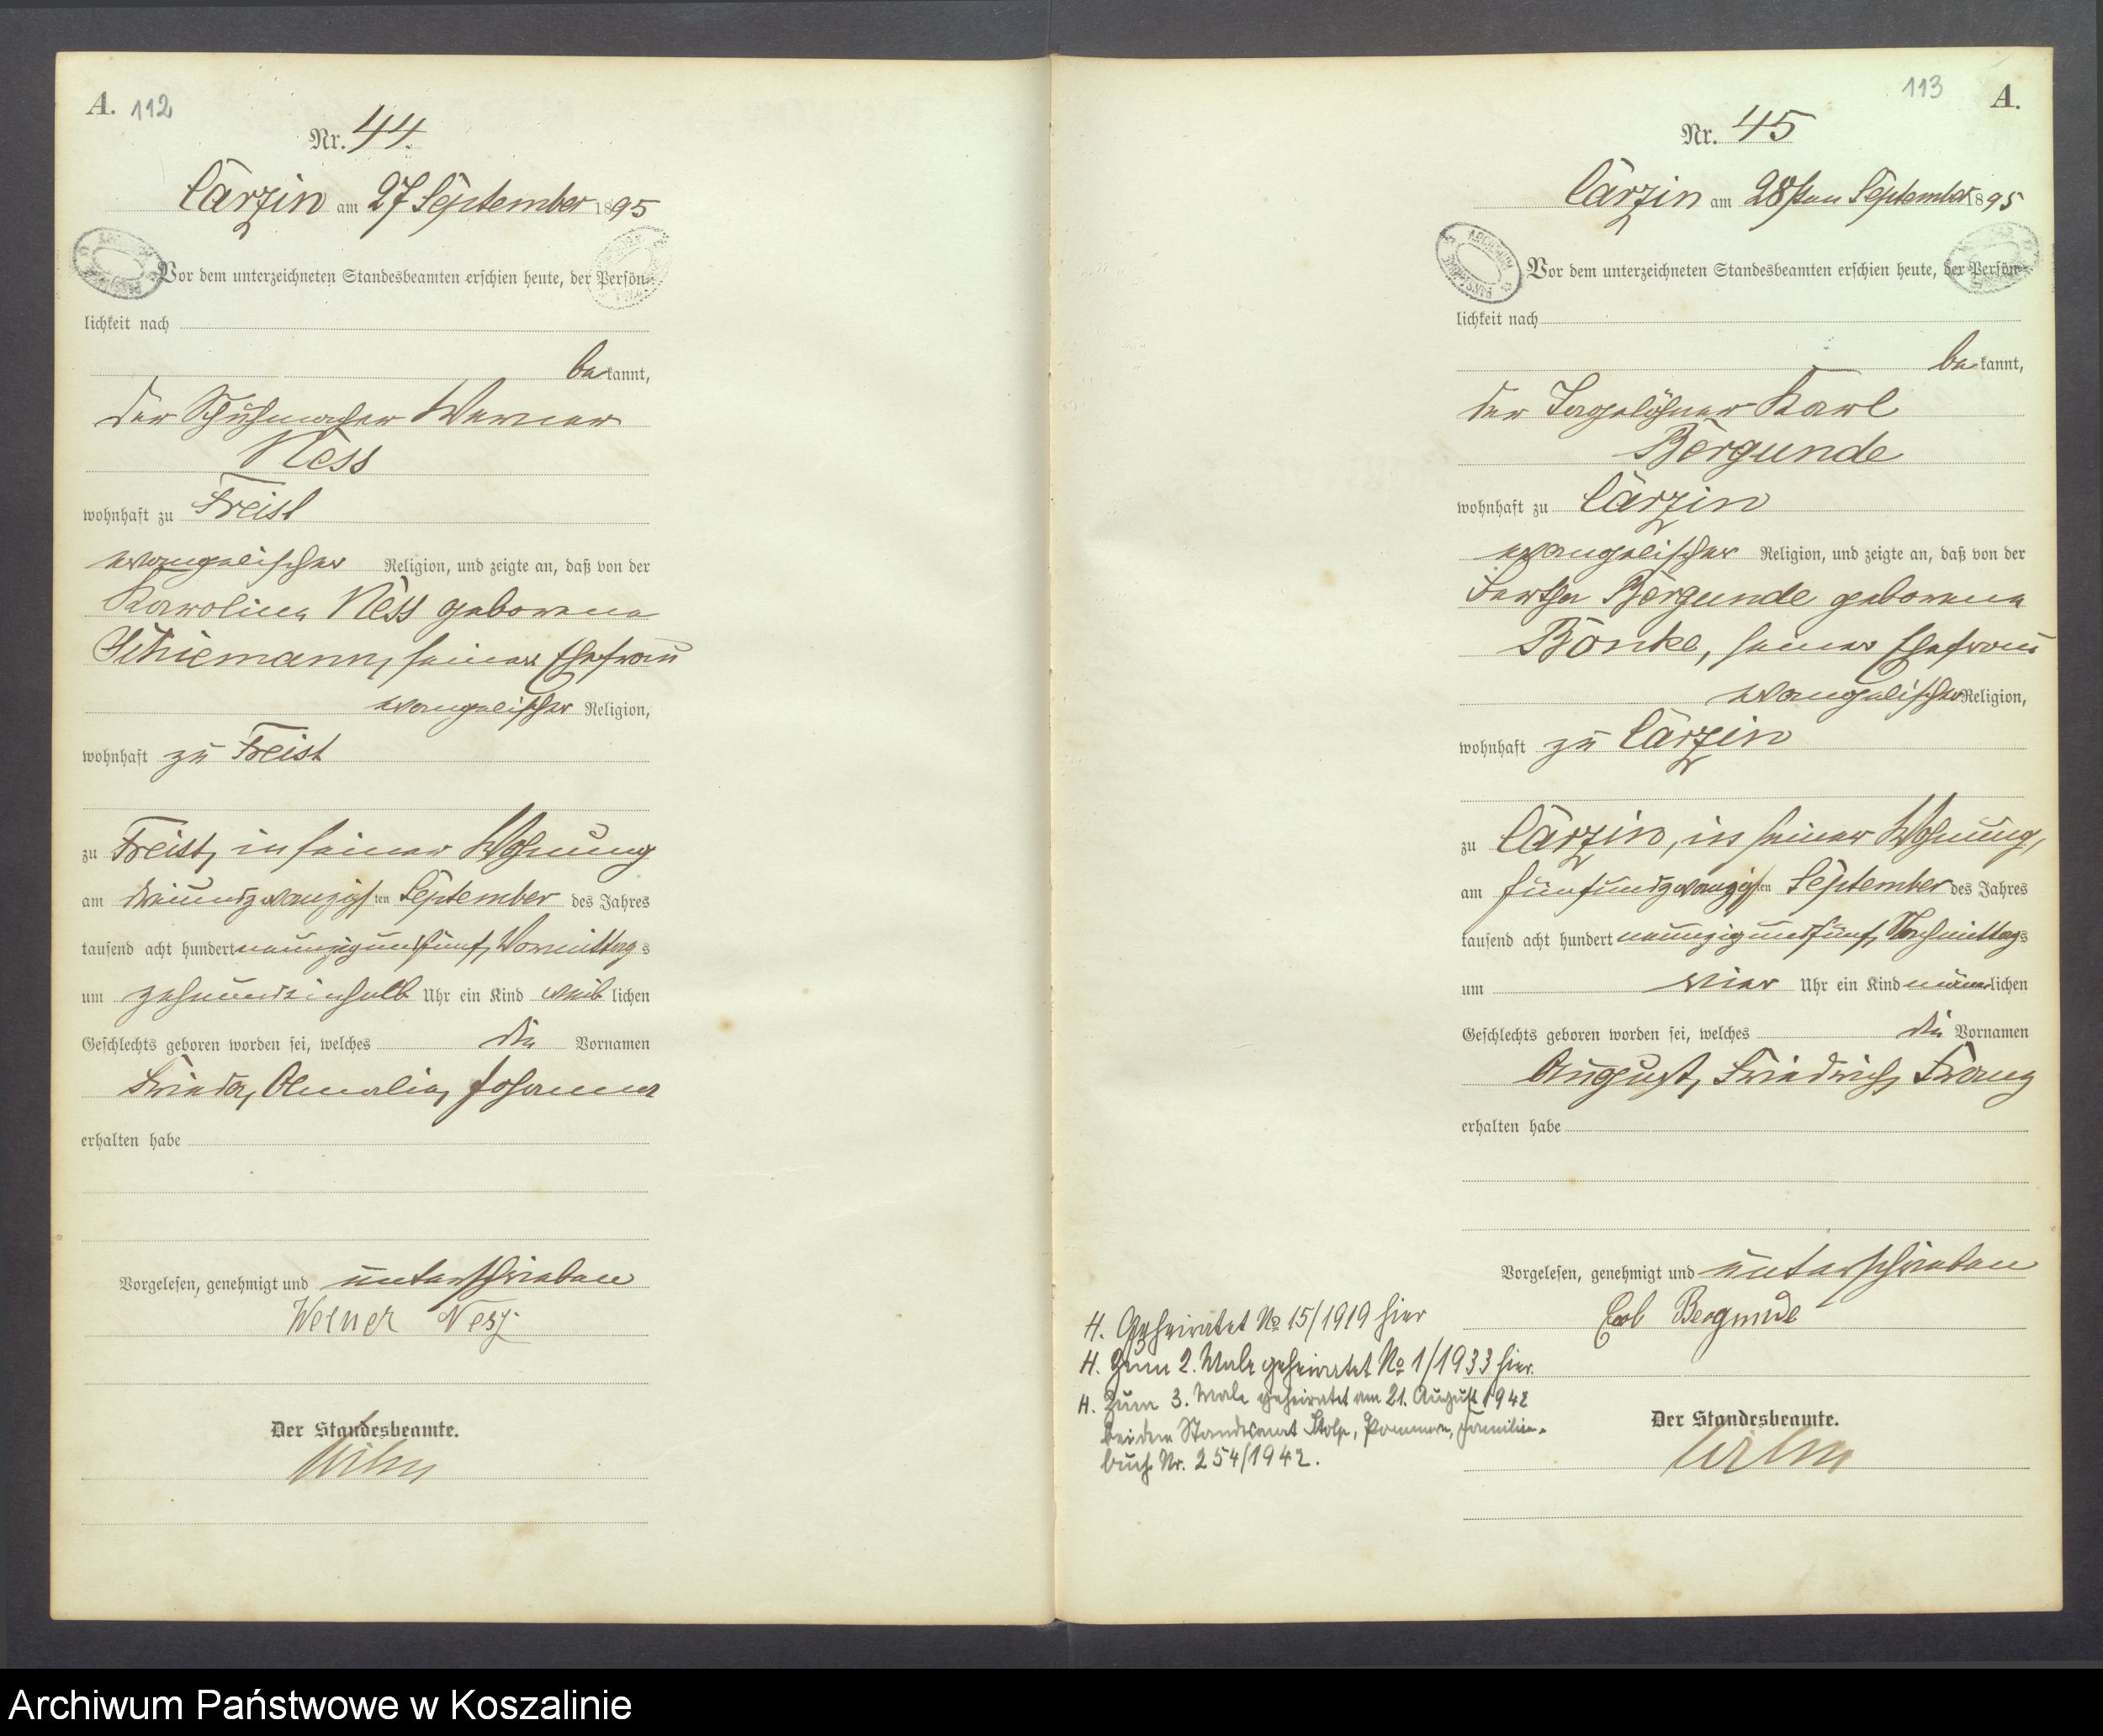 A. 112
Nr. 44.
Carzin am 27 September 1895
Vor dem unterzeichneten Standesbeamten erschien heute, der Persön-
lichkeit nach
bekannt,
der Schuhmacher Werner
Ness
wohnhaft zu Freist
evangelischer Religion, und zeigte an, daß von der
Karoline Ness geborene
Schiemann, seiner Ehefrau
evangelischer Religion,
wohnhaft zu Freist
zu Freist, in seiner Wohnung
am dreiundzwanzigsten September des Jahres
tausend acht hundert neunzig und fünf, Vormittags
um zehnundeinhalb Uhr ein Kind weiblichen
Geschlechts geboren worden sei, welches die Vornamen
Frieda, Amalie, Johanna
erhalten habe
Vorgelesen, genehmigt und unterschrieben
Werner Ness
Der Standesbeamte.
113 A.
Nr. 45
Carzin am 28ten September 1895
Vor dem unterzeichneten Standesbeamten erschien heute, der Persön-
lichkeit nach
bekannt,
der Tagelöhner Karl
Bergunde
wohnhaft zu Carzin
evangelischer Religion, und zeigte an, daß von der
Bergunde geborene
Bonke, seiner Ehefrau
evangelischer Religion,
wohnhaft zu Carzin
zu Carzin, in seiner Wohnung,
am fünfundzwanzigsten September des Jahres
tausend acht hundert neunzig und fünf, Nachmittags
um vier Uhr ein Kind männlichen
Geschlechts geboren worden sei, welches die Vornamen
August, Friedrich, Franz
erhalten habe
Vorgelesen, genehmigt und unterschrieben
Bergunde
Der Standesbeamte.
H. Geheiratet No 15/1919 hier
H. Zum 2. Male geheiratet No 1/1933 hier.
H. Zum 3. Male geheiratet am 21. August 1942
bei dem Standesamt Stolp, Pommern, Familien-
buch Nr. 254/1942.
Archiwum Państwowe w Koszalinie